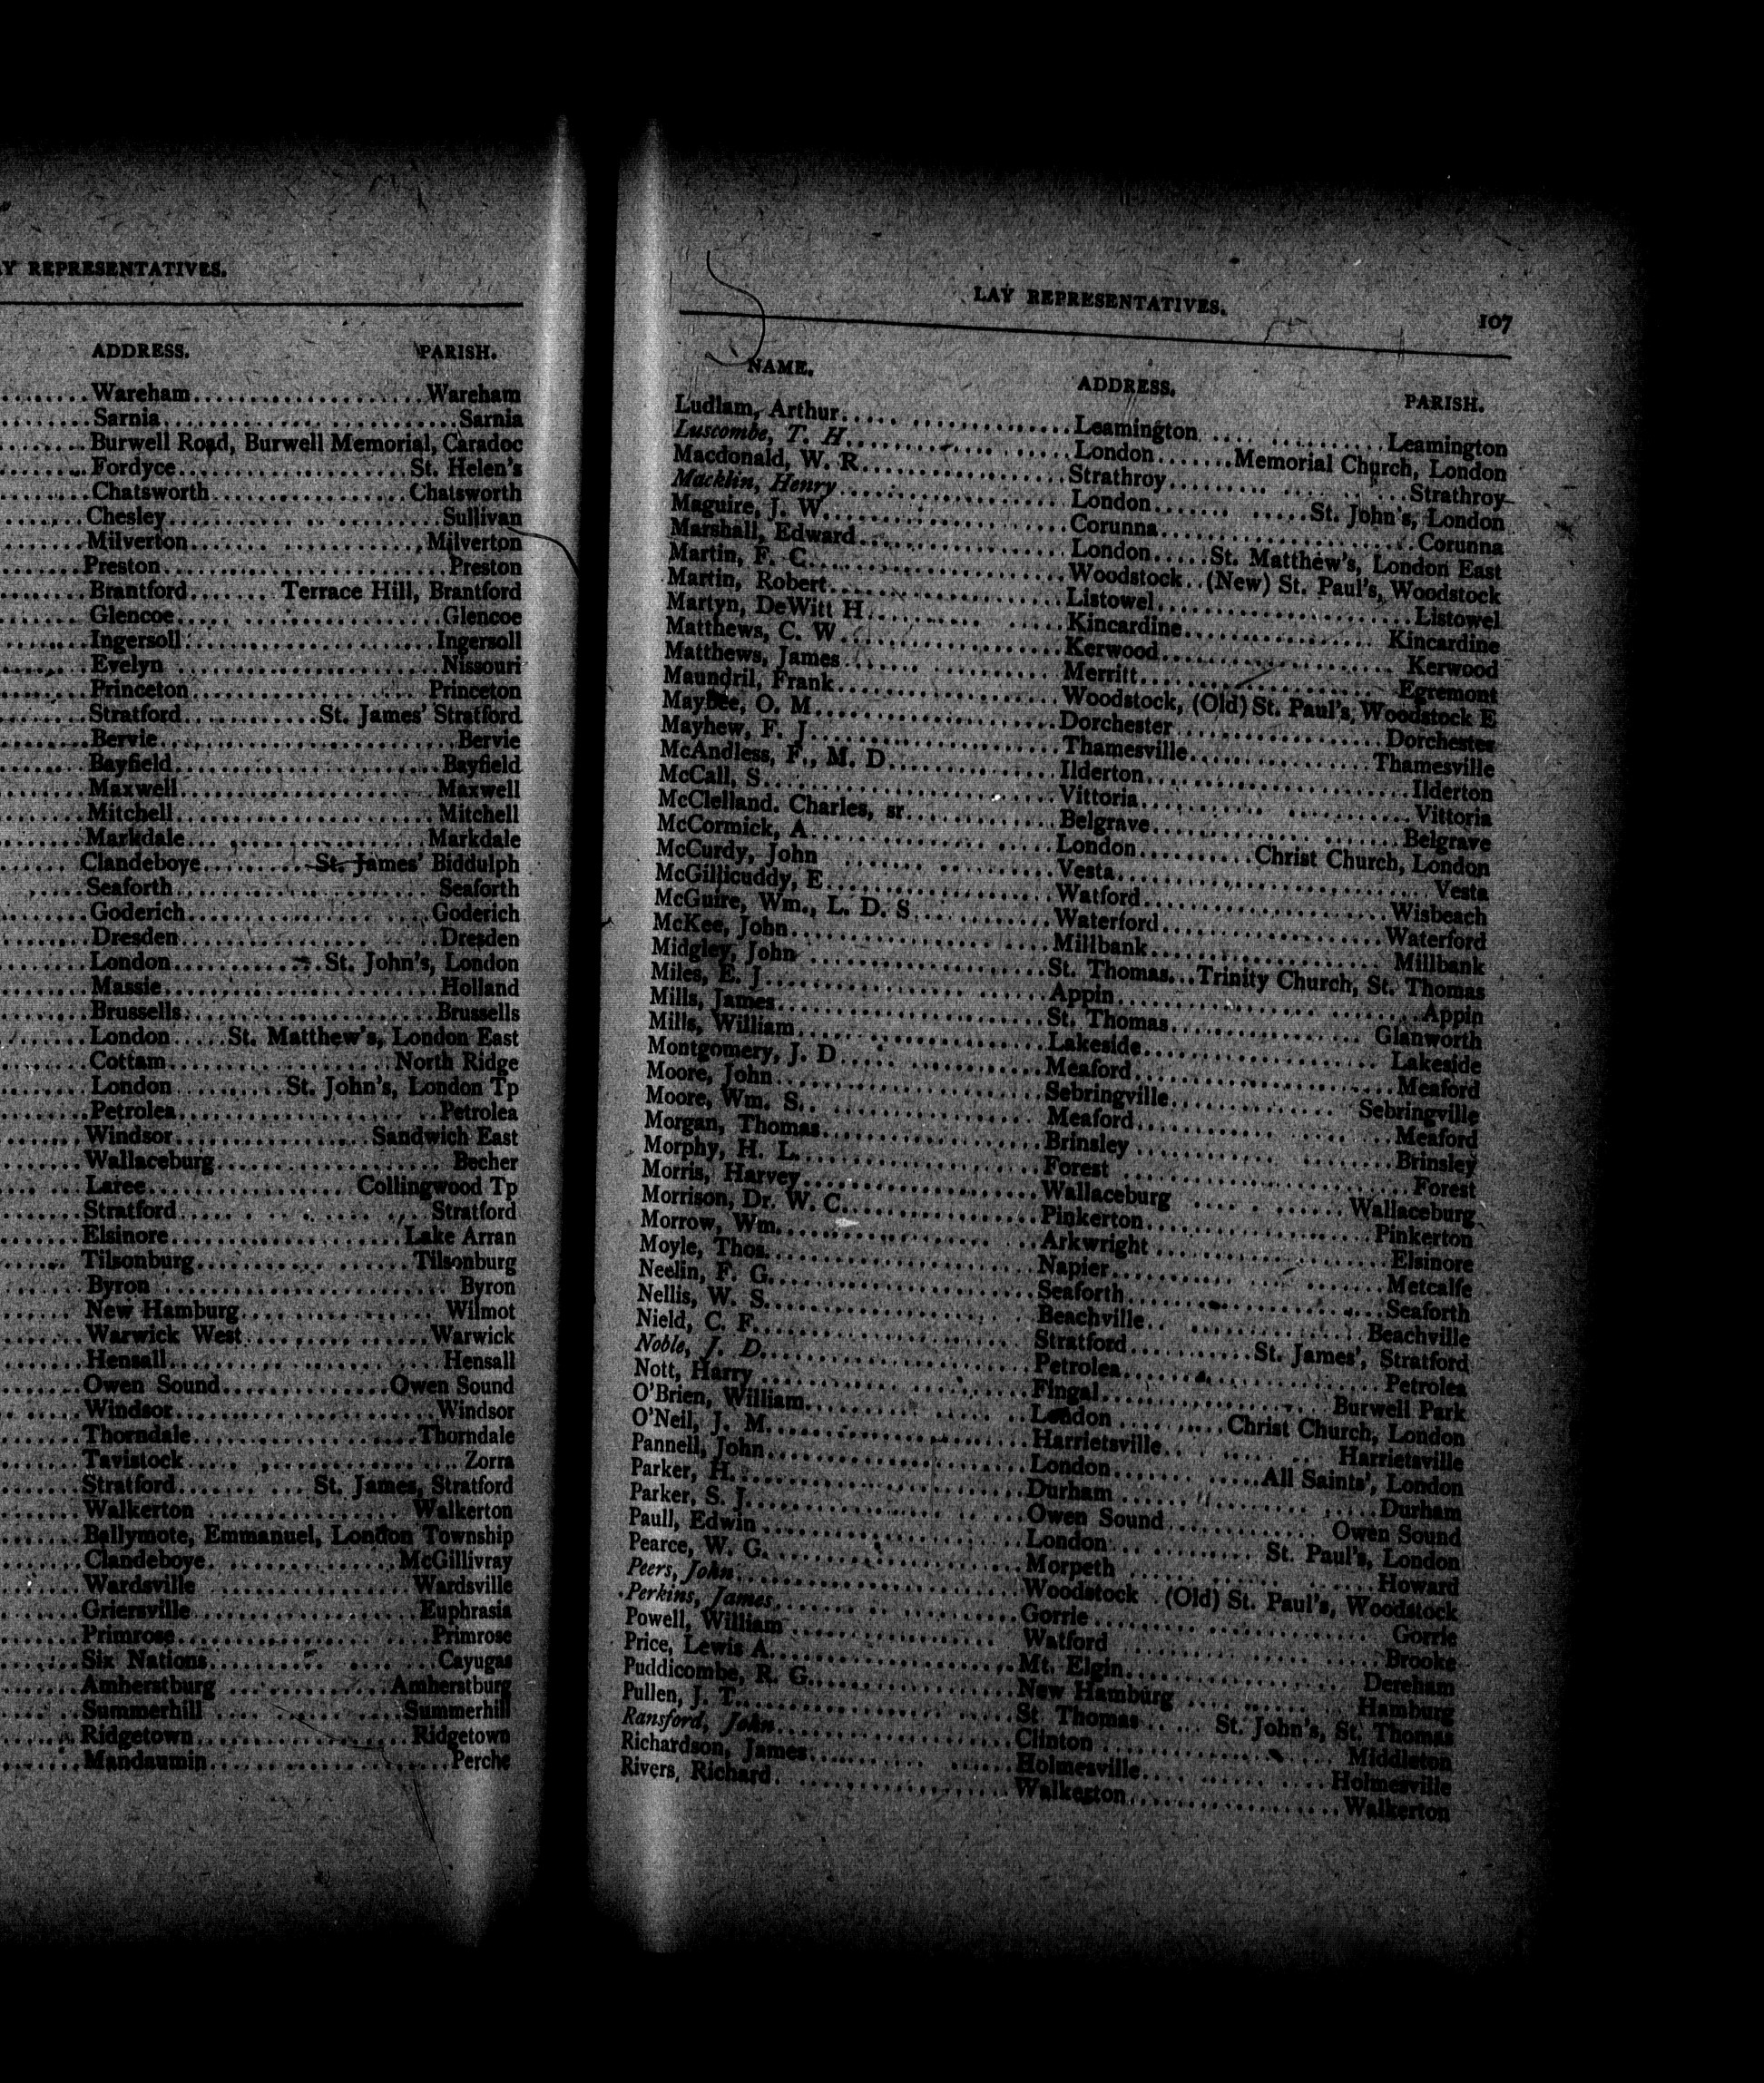 AY REPRESENTATIVES.
ADDRESS. PARISH.
Wareham Wareham
Sarnia Sarnia
Burwell Road, Burwell Memorial, Caradoc
Fordyce St. Helen's
Chatsworth Chatsworth
Chesley Sullivan
Milverton Milverton
Preston Preston
Brantford Terrace Hill, Brantford
Glencoe Glencoe
Ingersoll Ingersoll
Evelyn Nissouri
Princeton Princeton
Stratford St. James' Stratford
Bervie Bervie
Bayfield Bayfield
Maxwell Maxwell
Mitchell Mitchell
Markdale Markdale
Clandeboye St. James' Biddulph
Seaforth Seaforth
Goderich Goderich
Dresden Dresden
London St. John's, London
Massie Holland
Brussells Brussells
London St. Matthew's, London East
Cottam North Ridge
London St. John's, London Tp
Petrolea Petrolea
Windsor Sandwich East
Wallaceburg Becher
Laree Collingwood Tp
Stratford Stratford
Elsinore Lake Arran
Tilsonburg Tilsonburg
Byron Byron
New Hamburg Wilmot
Warwick West Warwick
Hensall Hensall
Owen Sound Owen Sound
Windsor Windsor
Thorndale Thorndale
Tavistock Zorra
Stratford St. James, Stratford
Walkerton Walkerton
Ballymote, Emmanuel, London Township
Clandeboye McGillivray
Wardsville Wardsville
Griersville Euphrasia
Primrose Primrose
Six Nations Cayugas
Amherstburg Amherstburg
Summerhill Summerhill
Ridgetown Ridgetown
Mandaumin Perche
LAY REPRESENTATIVES. 107
NAME. ADDRESS. PARISH.
Ludlam, Arthur Leamington Leamington
Luscombe, T. H London Memorial Church, London
Macdonald, W. R Strathroy Strathroy
Macklin, Henry London St. John's, London
Maguire, J. W Corunna Corunna
Marshall, Edward London St. Matthew's, London East
Martin, F. C Woodstock (New) St. Paul's, Woodstock
Martin, Robert Listowel Listowel
Martyn, DeWitt H Kincardine Kincardine
Matthews, C. W Kerwood Kerwood
Matthews, James Merritt Egremont
Maundril, Frank Woodstock, (Old) St. Paul's, Woodstock E
Maybee, O. M Dorchester Dorchester
Mayhew, F. J Thamesville Thamesville
McAndless, F., M. D Ilderton Ilderton
McCall, S Vittoria Vittoria
McClelland. Charles, sr Belgrave Belgrave
McCormick, A London Christ Church, London
McCurdy, John Vesta Vesta
McGillicuddy, E Watford Wisbeach
McGuire, Wm., L. D. S Waterford Waterford
McKee, John Millbank Millbank
Midgley, John St. Thomas Trinity Church, St. Thomas
Miles, E. J Appin Appin
Mills, James St. Thomas Glanworth
Mills, William Lakeside Lakeside
Montgomery, J. D Meaford Meaford
Moore, John Sebringville Sebringville
Moore, Wm. S. Meaford Meaford
Morgan, Thomas Brinsley Brinsley
Morphy, H. L. Forest Forest
Morris, Harvey Wallaceburg Wallaceburg
Morrison, Dr. W. C. Pinkerton Pinkerton
Morrow, Wm. Arkwright Elsinore
Moyle, Thos. Napier Metcalfe
Neelin, F. G. Seaforth Seaforth
Nellis, W. S. Beachville Beachville
Nield, C. F. Stratford St. James', Stratford
Noble, J. D. Petrolea Petrolea
Nott, Harry Fingal Burwell Park
O'Brien, William London Christ Church, London
O'Neil, J. M. Harrietsville Harrietsville
Pannell, John London All Saints', London
Parker, H. Durham Durham
Parker, S. J. Owen Sound Owen Sound
Paull, Edwin London St. Paul's, London
Pearce, W. G. Morpeth Howard
Peers, John Woodstock (Old) St. Paul's, Woodstock
Perkins, James Gorrie Gorrie
Powell, William Watford Brooke
Price, Lewis A. Mt. Elgin Dereham
Puddicombe, R. G. New Hamburg Hamburg
Pullen, J. T. St Thomas St. John's, St. Thomas
Ransford, John Clinton Middleton
Richardson, James Holmesville Holmesville
Rivers, Richard Walkerton Walkerton